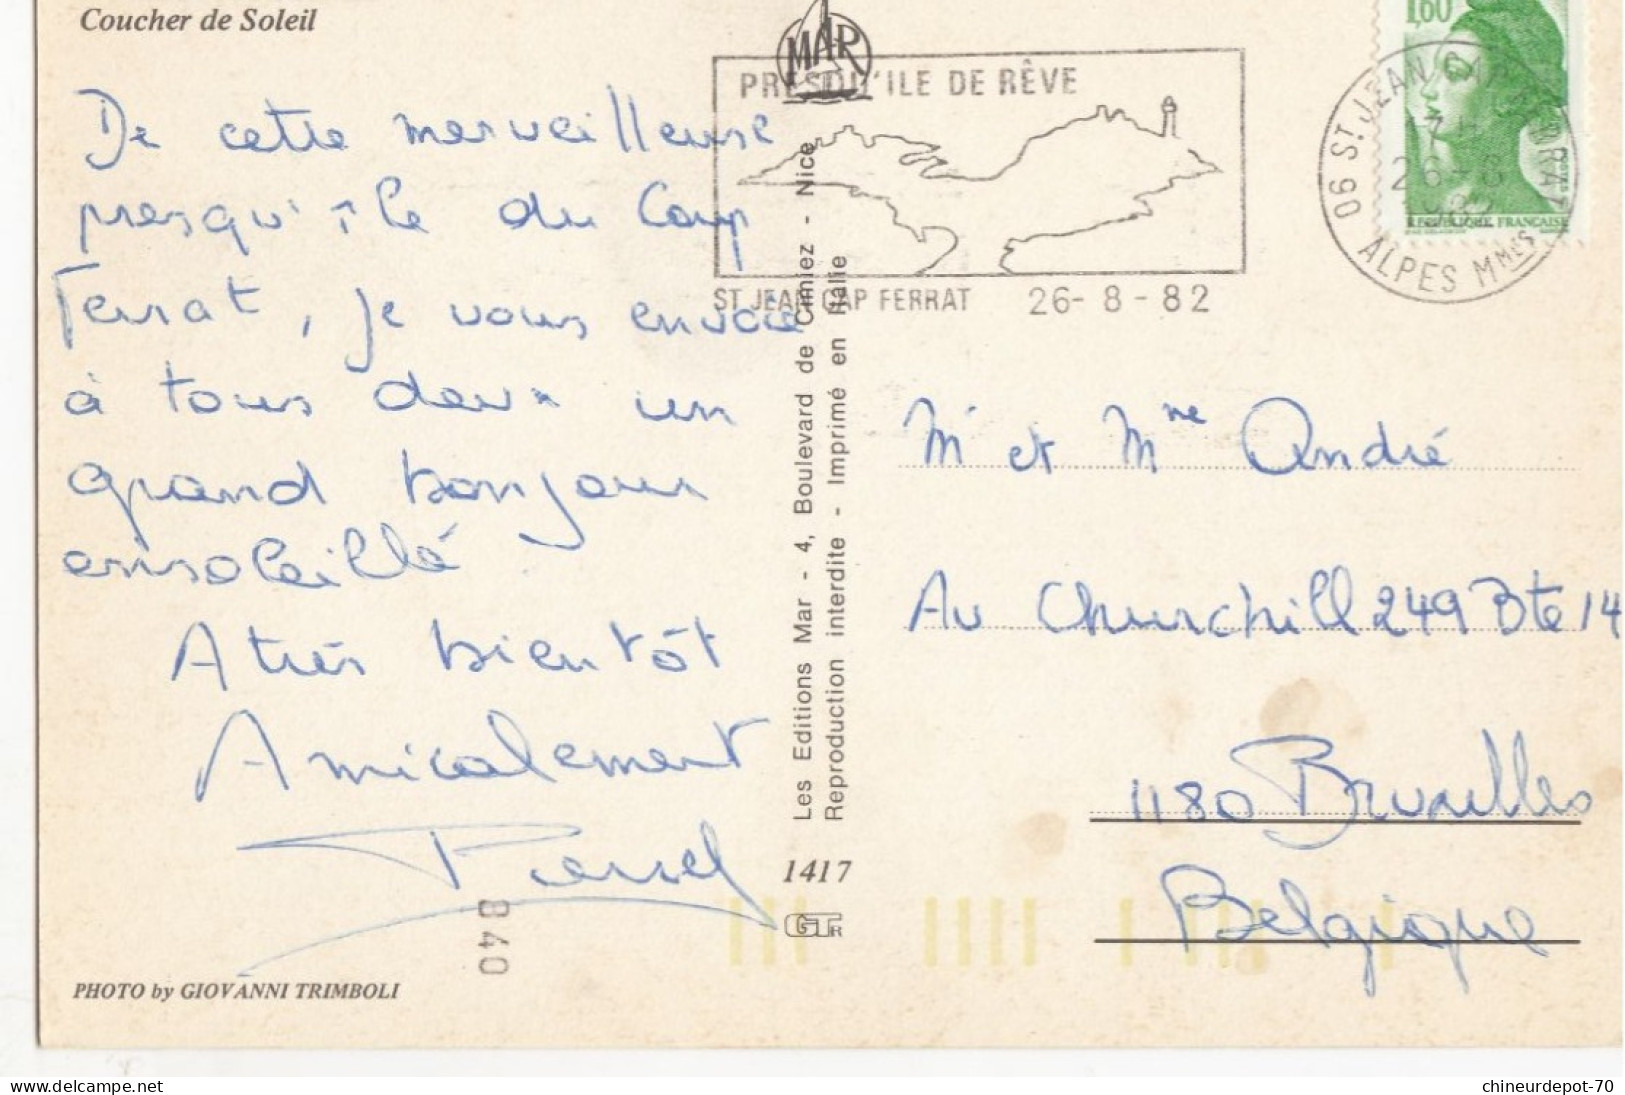 Coucher de Soleil
De cette merveilleuse
presqu'île du Cap
Ferrat, je vous envoie
à tous deux un
grand bonjour
ensoleillé
A très bientôt
Amicalement
PHOTO by GIOVANNI TRIMBOLI
840
MAR
PRESQU'ILE DE RÊVE
ST JEAN CAP FERRAT 26-8-82
Les Editions Mar - 4, Boulevard de Cimiez - Nice
Reproduction interdite - Imprimé en Italie
1417
GTR
1,60
REPUBLIQUE FRANÇAISE
06 ST JEAN CAP FERRAT
ALPES MMES
Mr et Mme André
Av Churchill 249 Bte 14
1180 Bruxelles
Belgique
www.delcampe.net
chineurdepot-70